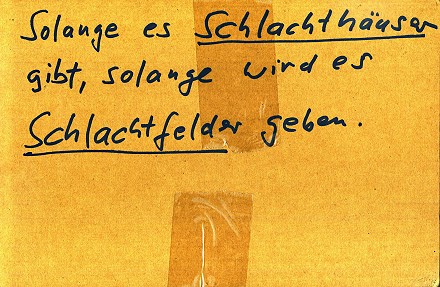 Solange es Schlachthäuser
gibt, solange wird es
Schlachtfelder geben.